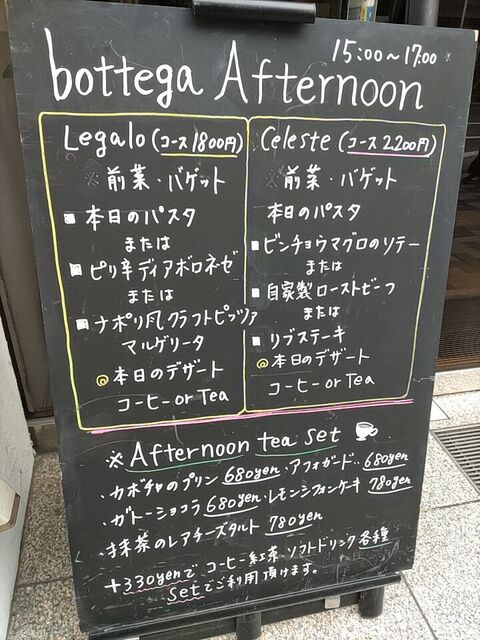 15:00～17:00
bottega Afternoon
Legalo (コース1800円)
※前菜・バゲット
■本日のパスタ
または
■ピリ辛ディアボロネゼ
または
■ナポリ風クラフトピッツァ
マルゲリータ
◎本日のデザート
コーヒー or Tea
Celeste (コース2,200円)
※前菜・バゲット
本日のパスタ
■ビンチョウマグロのソテー
または
■自家製ローストビーフ
または
■リブステーキ
◎本日のデザート
コーヒー or Tea
※Afternoon tea set
・カボチャのプリン 680yen・アフォガード 680yen
・ガトーショコラ 680yen・レモンシフォンケーキ 780yen
・抹茶のレアチーズタルト 780yen
+330yenで コーヒー・紅茶・ソフトドリンク各種
setでご利用頂けます。